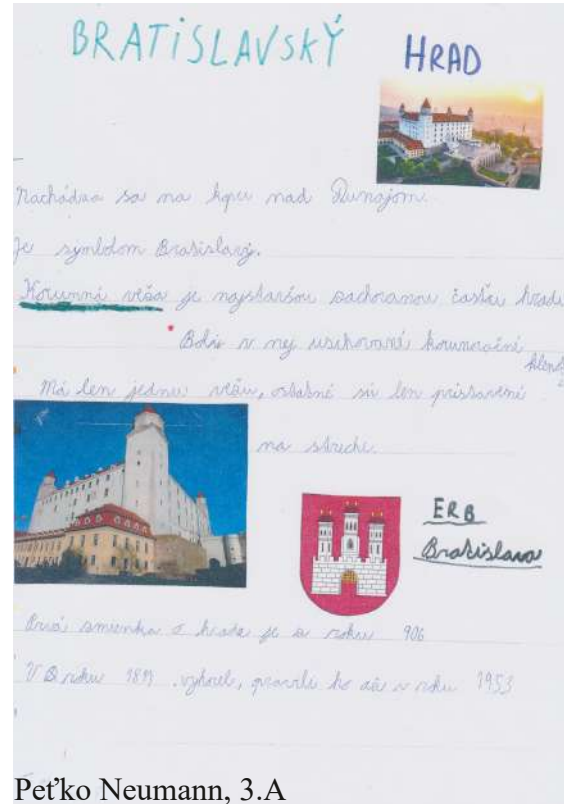 BRATISLAVSKÝ HRAD
Nachádza sa na kopci nad Dunajom.
Je symbolom Bratislavy.
Korunná veža je najstaršou zachovanou časťou hradu
Boli v nej uschované korunovačné
klenoty
Má len jednu vežu, ostatné sú len pristavené
na streche.
ERB
Bratislava
Prvá zmienka o hrade je z roku 906
V roku 1811 vyhorel, opravili ho až v roku 1953
Peťko Neumann, 3.A